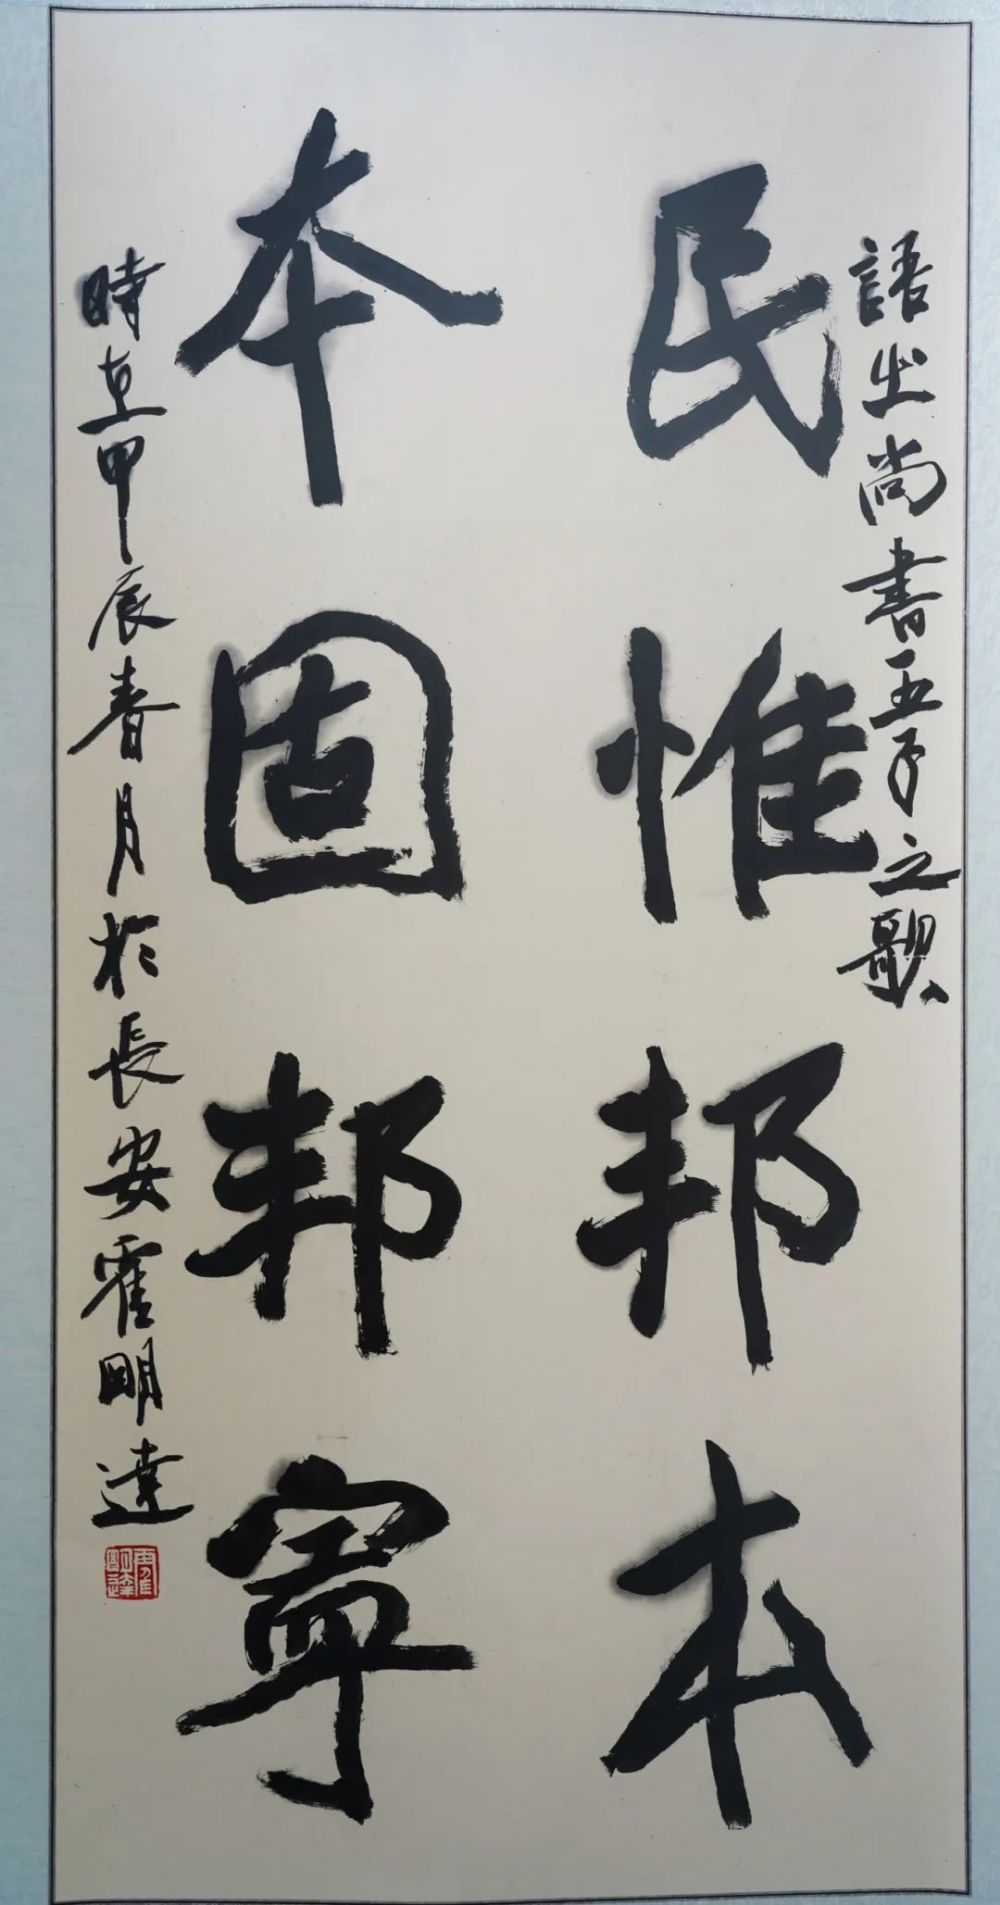 語出尚書五子之歌
民惟邦本
本固邦寧
時在甲辰春月於長安霍明達
霍明達